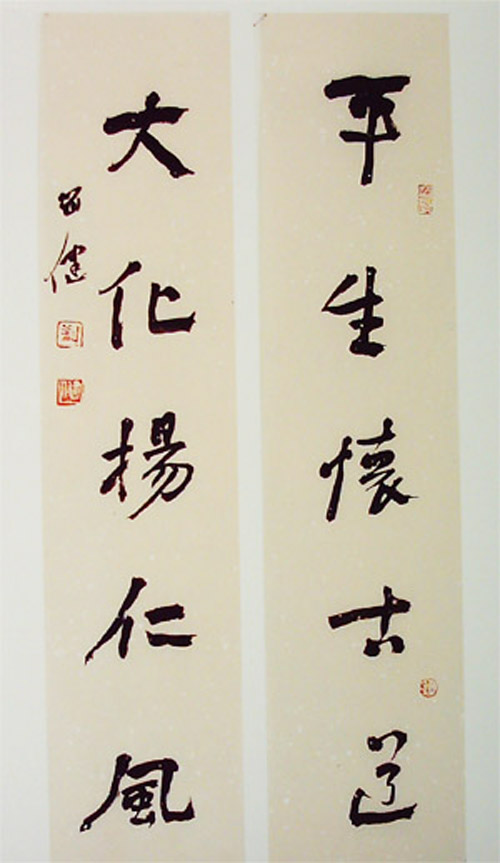 平生懷古道
大化揚仁風